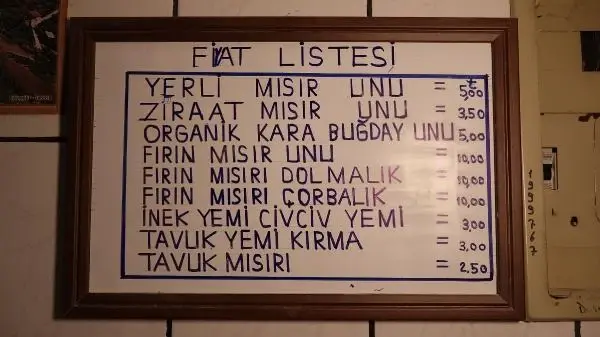 FİYAT LİSTESİ
YERLİ MISIR UNU = 5,00 ₺
ZİRAAT MISIR UNU = 3,50
ORGANİK KARA BUĞDAY UNU 5,00
FIRIN MISIR UNU = 10,00
FIRIN MISIRI DOLMALIK = 10,00
FIRIN MISIRI ÇORBALIK = 10,00
İNEK YEMİ CİVCİV YEMİ = 3,00
TAVUK YEMİ KIRMA = 3,00
TAVUK MISIRI = 2.50
199976 7